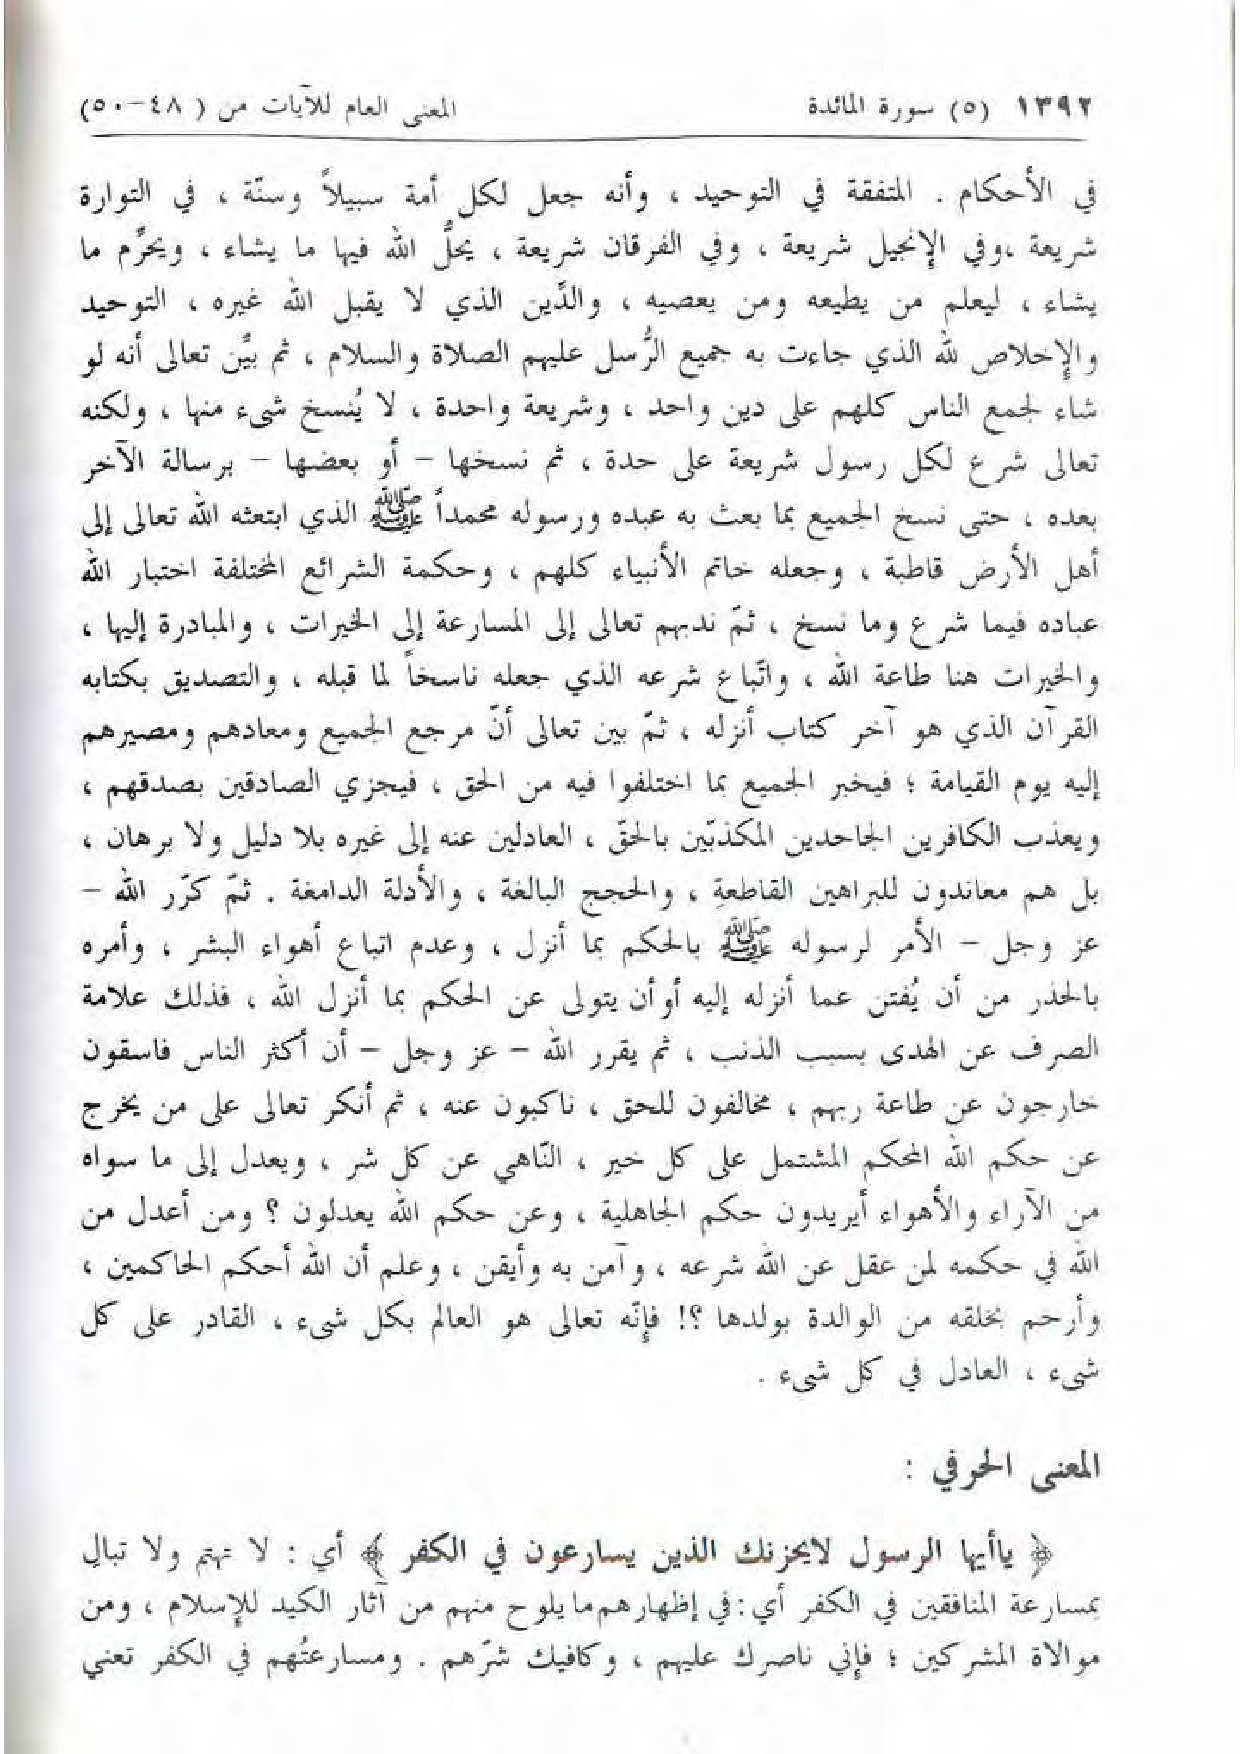 ١٣٩٢ (٥) سورة المائدة المعنى العام للآيات من ( ٤٨-٥٠)
في الأحكام . المتفقة في التوحيد ، وأنه جعل لكل أمة سبيلاً وسنّة ، في التوارة
شريعة ،وفي الإنجيل شريعة ، وفي الفرقان شريعة ، يحلُّ الله فيها ما يشاء ، ويحرِّم ما
يشاء ، ليعلم من يطيعه ومن يعصيه ، والدِّين الذي لا يقبل الله غيره ، التوحيد
والإِخلاص لله الذي جاءت به جميع الرُّسل عليهم الصلاة والسلام ، ثم بيَّن تعالى أنه لو
شاء لجمع الناس كلهم على دين واحد ، وشريعة واحدة ، لا يُنسخ شىء منها ، ولكنه
تعالى شرع لكل رسول شريعة على حدة ، ثم نسخها – أو بعضها – برسالة الآخر
بعده ، حتى نسخ الجميع بما بعث به عبده ورسوله محمداً ﷺ الذي ابتعثه الله تعالى إلى
أهل الأرض قاطبة ، وجعله خاتم الأنبياء كلهم ، وحكمة الشرائع المختلفة اختبار الله
عباده فيما شرع وما نسخ ، ثمّ ندبهم تعالى إلى المسارعة إلى الخيرات ، والمبادرة إليها ،
والخيرات هنا طاعة الله ، واتّباع شرعه الذي جعله ناسخاً لما قبله ، والتصديق بكتابه
القرآن الذي هو آخر كتاب أنزله ، ثمّ بين تعالى أنّ مرجع الجميع ومعادهم ومصيرهم
إليه يوم القيامة ؛ فيخبر الجميع بما اختلفوا فيه من الحق ، فيجزي الصادقين بصدقهم ،
ويعذب الكافرين الجاحدين المكذبّين بالحقّ ، العادلين عنه إلى غيره بلا دليل ولا برهان ،
بل هم معاندون للبراهين القاطعةِ ، والحجج البالغة ، والأدلة الدامغة . ثمّ كرّر الله –
عز وجل – الأمر لرسوله ﷺ بالحكم بما أنزل ، وعدم اتباع أهواء البشر ، وأمره
بالحذر من أن يُفتن عما أنزله إليه أوأن يتولى عن الحكم بما أنزل الله ، فذلك علامة
الصرف عن الهدى بسبب الذنب ، ثم يقرر الله – عز وجل – أن أكثر الناس فاسقون
خارجون عن طاعة ربهم ، مخالفون للحق ، ناكبون عنه ، ثم أنكر تعالى على من يخرج
عن حكم الله المحكم المشتمل على كل خير ، النّاهي عن كل شر ، ويعدل إلى ما سواه
من الآراء والأهواء أيريدون حكم الجاهلية ، وعن حكم الله يعدلون ؟ ومن أعدل من
الله في حكمه لمن عقل عن الله شرعه ، وآمن به وأيقن ، وعلم أن الله أحكم الحاكمين ،
وأرحم بخلقه من الوالدة بولدها ؟! فإنّه تعالى هو العالم بكل شىء ، القادر على كل
شىء ، العادل في كل شىء .
المعنى الحرفي :
﴿ ياأيها الرسول لايحزنك الذين يسارعون في الكفر ﴾ أي : لا تهتم ولا تبالِ
بمسارعة المنافقين في الكفر أي : في إظهارهم ما يلوح منهم من آثار الكيد للإسلام ، ومن
موالاة المشركين ؛ فإني ناصرك عليهم ، وكافيك شرّهم . ومسارعتُهم في الكفر تعني